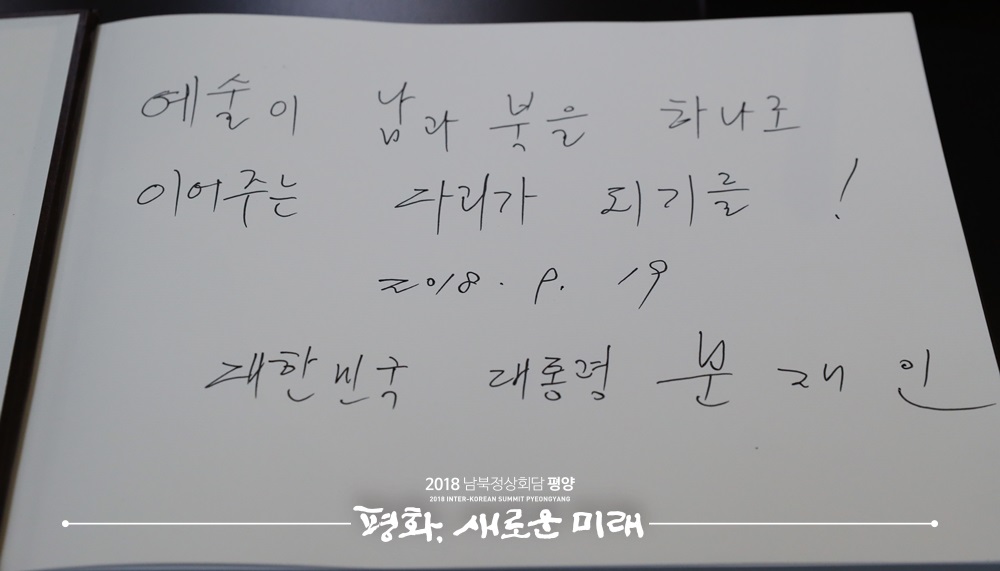 예술이 남과 북을 하나로
이어주는 다리가 되기를!
2018. 9. 19
대한민국 대통령 문재인
2018 남북정상회담 평양
2018 INTER-KOREAN SUMMIT PYEONGYANG
평화, 새로운 미래